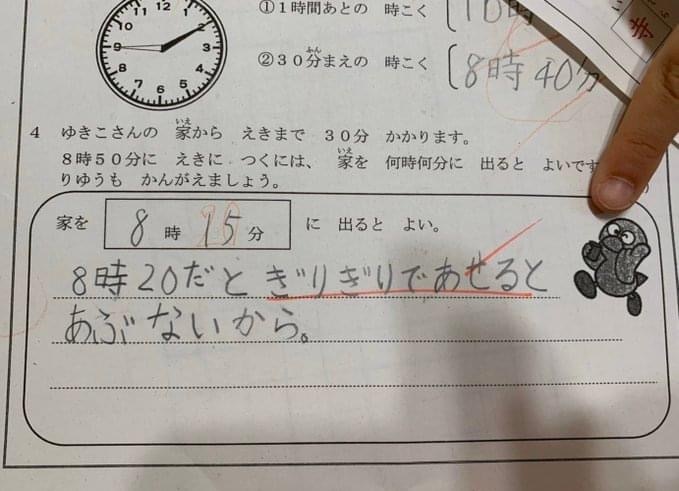 ①1時間あとの 時こく 10時
②30分まえの 時こく 8時40分
12
11
1
10
2
9
3
8
4
7
5
6
4 ゆきこさんの 家から えきまで 30分 かかります。
8時50分に えきに つくには、 家を 何時何分に 出ると よいです
りゆうも かんがえましょう。
家を 8時15分 に 出ると よい。
8時20だと ぎりぎりであせると
あぶないから。